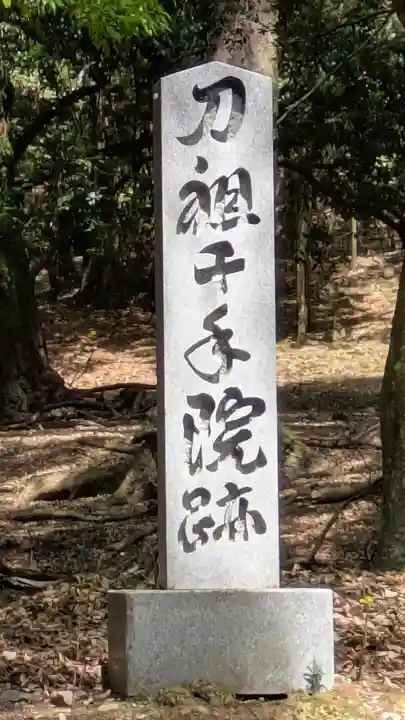 刀祖千手院跡